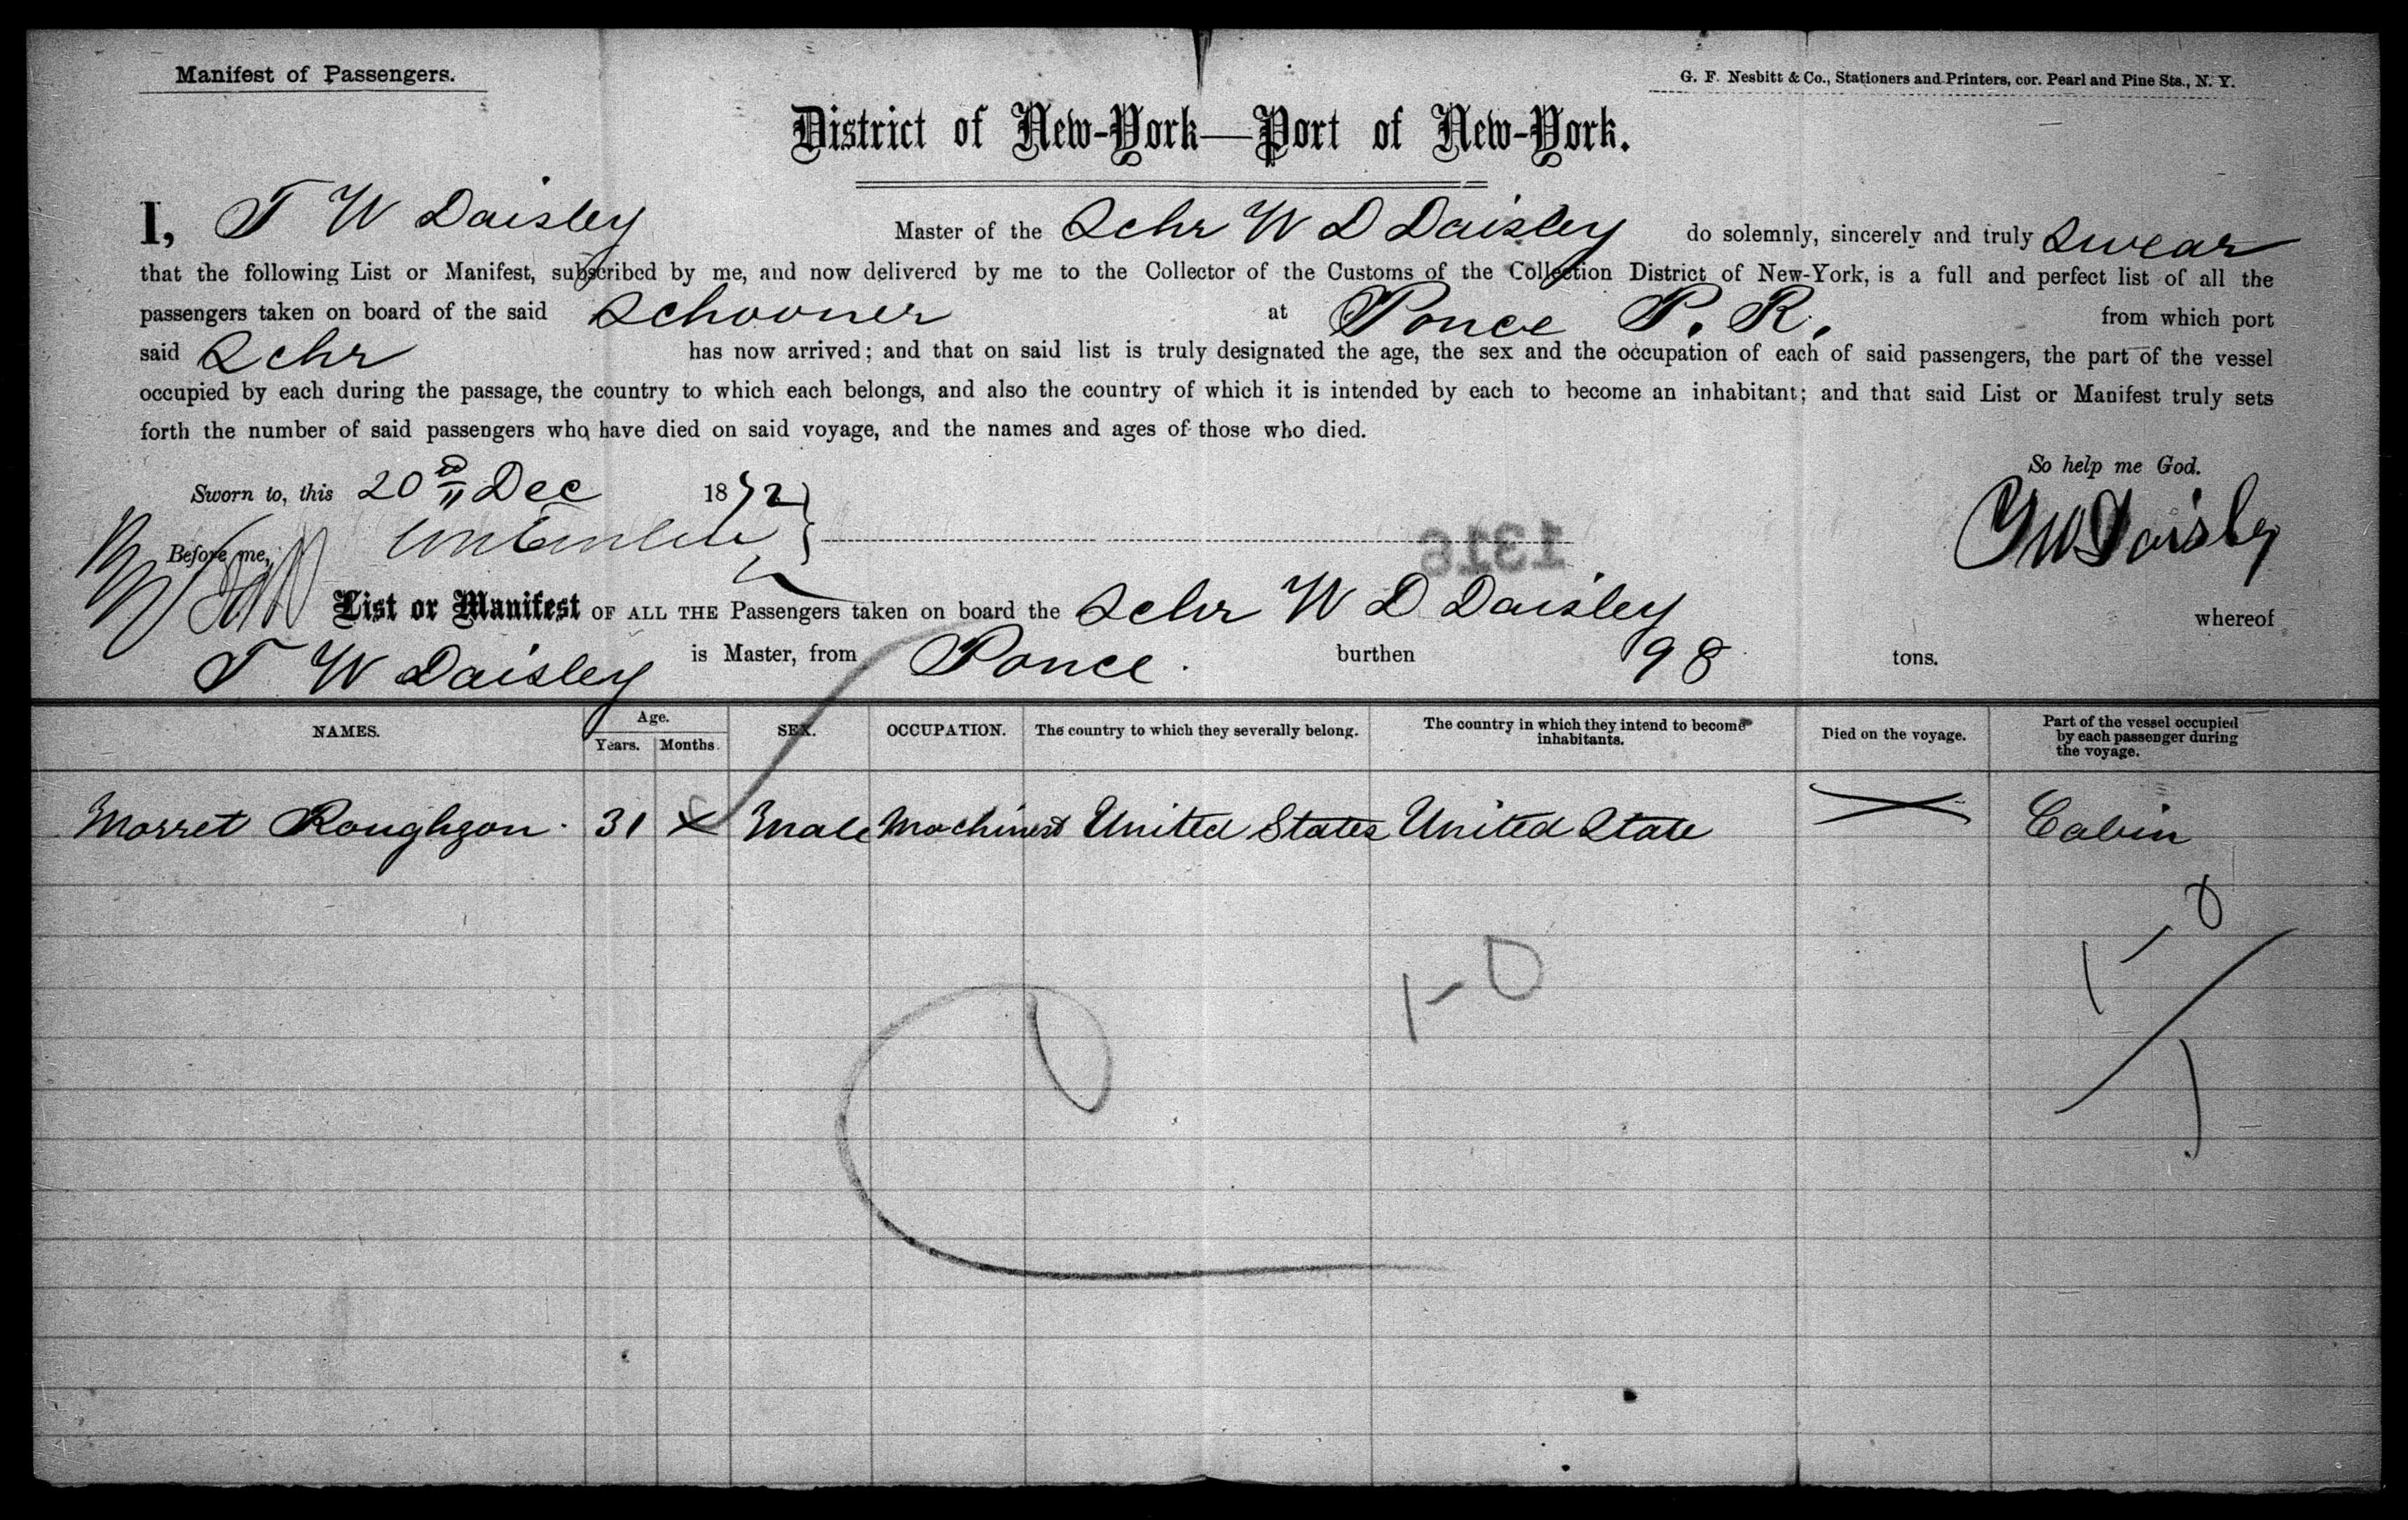 Manifest of Passengers.
G. F. Nesbitt & Co., Stationers and Printers, cor. Pearl and Pine Sts., N. Y.
District of New-York—Port of New-York.
I, T W Daisley Master of the Schr W D Daisley do solemnly, sincerely and truly swear
that the following List or Manifest, subscribed by me, and now delivered by me to the Collector of the Customs of the Collection District of New-York, is a full and perfect list of all the
passengers taken on board of the said Schooner at Ponce P. R. from which port
said Schr has now arrived; and that on said list is truly designated the age, the sex and the occupation of each of said passengers, the part of the vessel
occupied by each during the passage, the country to which each belongs, and also the country of which it is intended by each to become an inhabitant; and that said List or Manifest truly sets
forth the number of said passengers who have died on said voyage, and the names and ages of those who died.
So help me God.
Sworn to, this 20th Dec 1872
TW Daisley
Before me,
1316
List or Manifest OF ALL THE Passengers taken on board the Schr W D Daisley whereof
T W Daisley is Master, from Ponce. burthen 98 tons.
NAMES. Age. Years. Months. SEX. OCCUPATION. The country to which they severally belong. The country in which they intend to become inhabitants. Died on the voyage. Part of the vessel occupied by each passenger during the voyage.
Morret Roughgon. 31 x Male Machinest United States United State Cabin
1-0
1-0
1